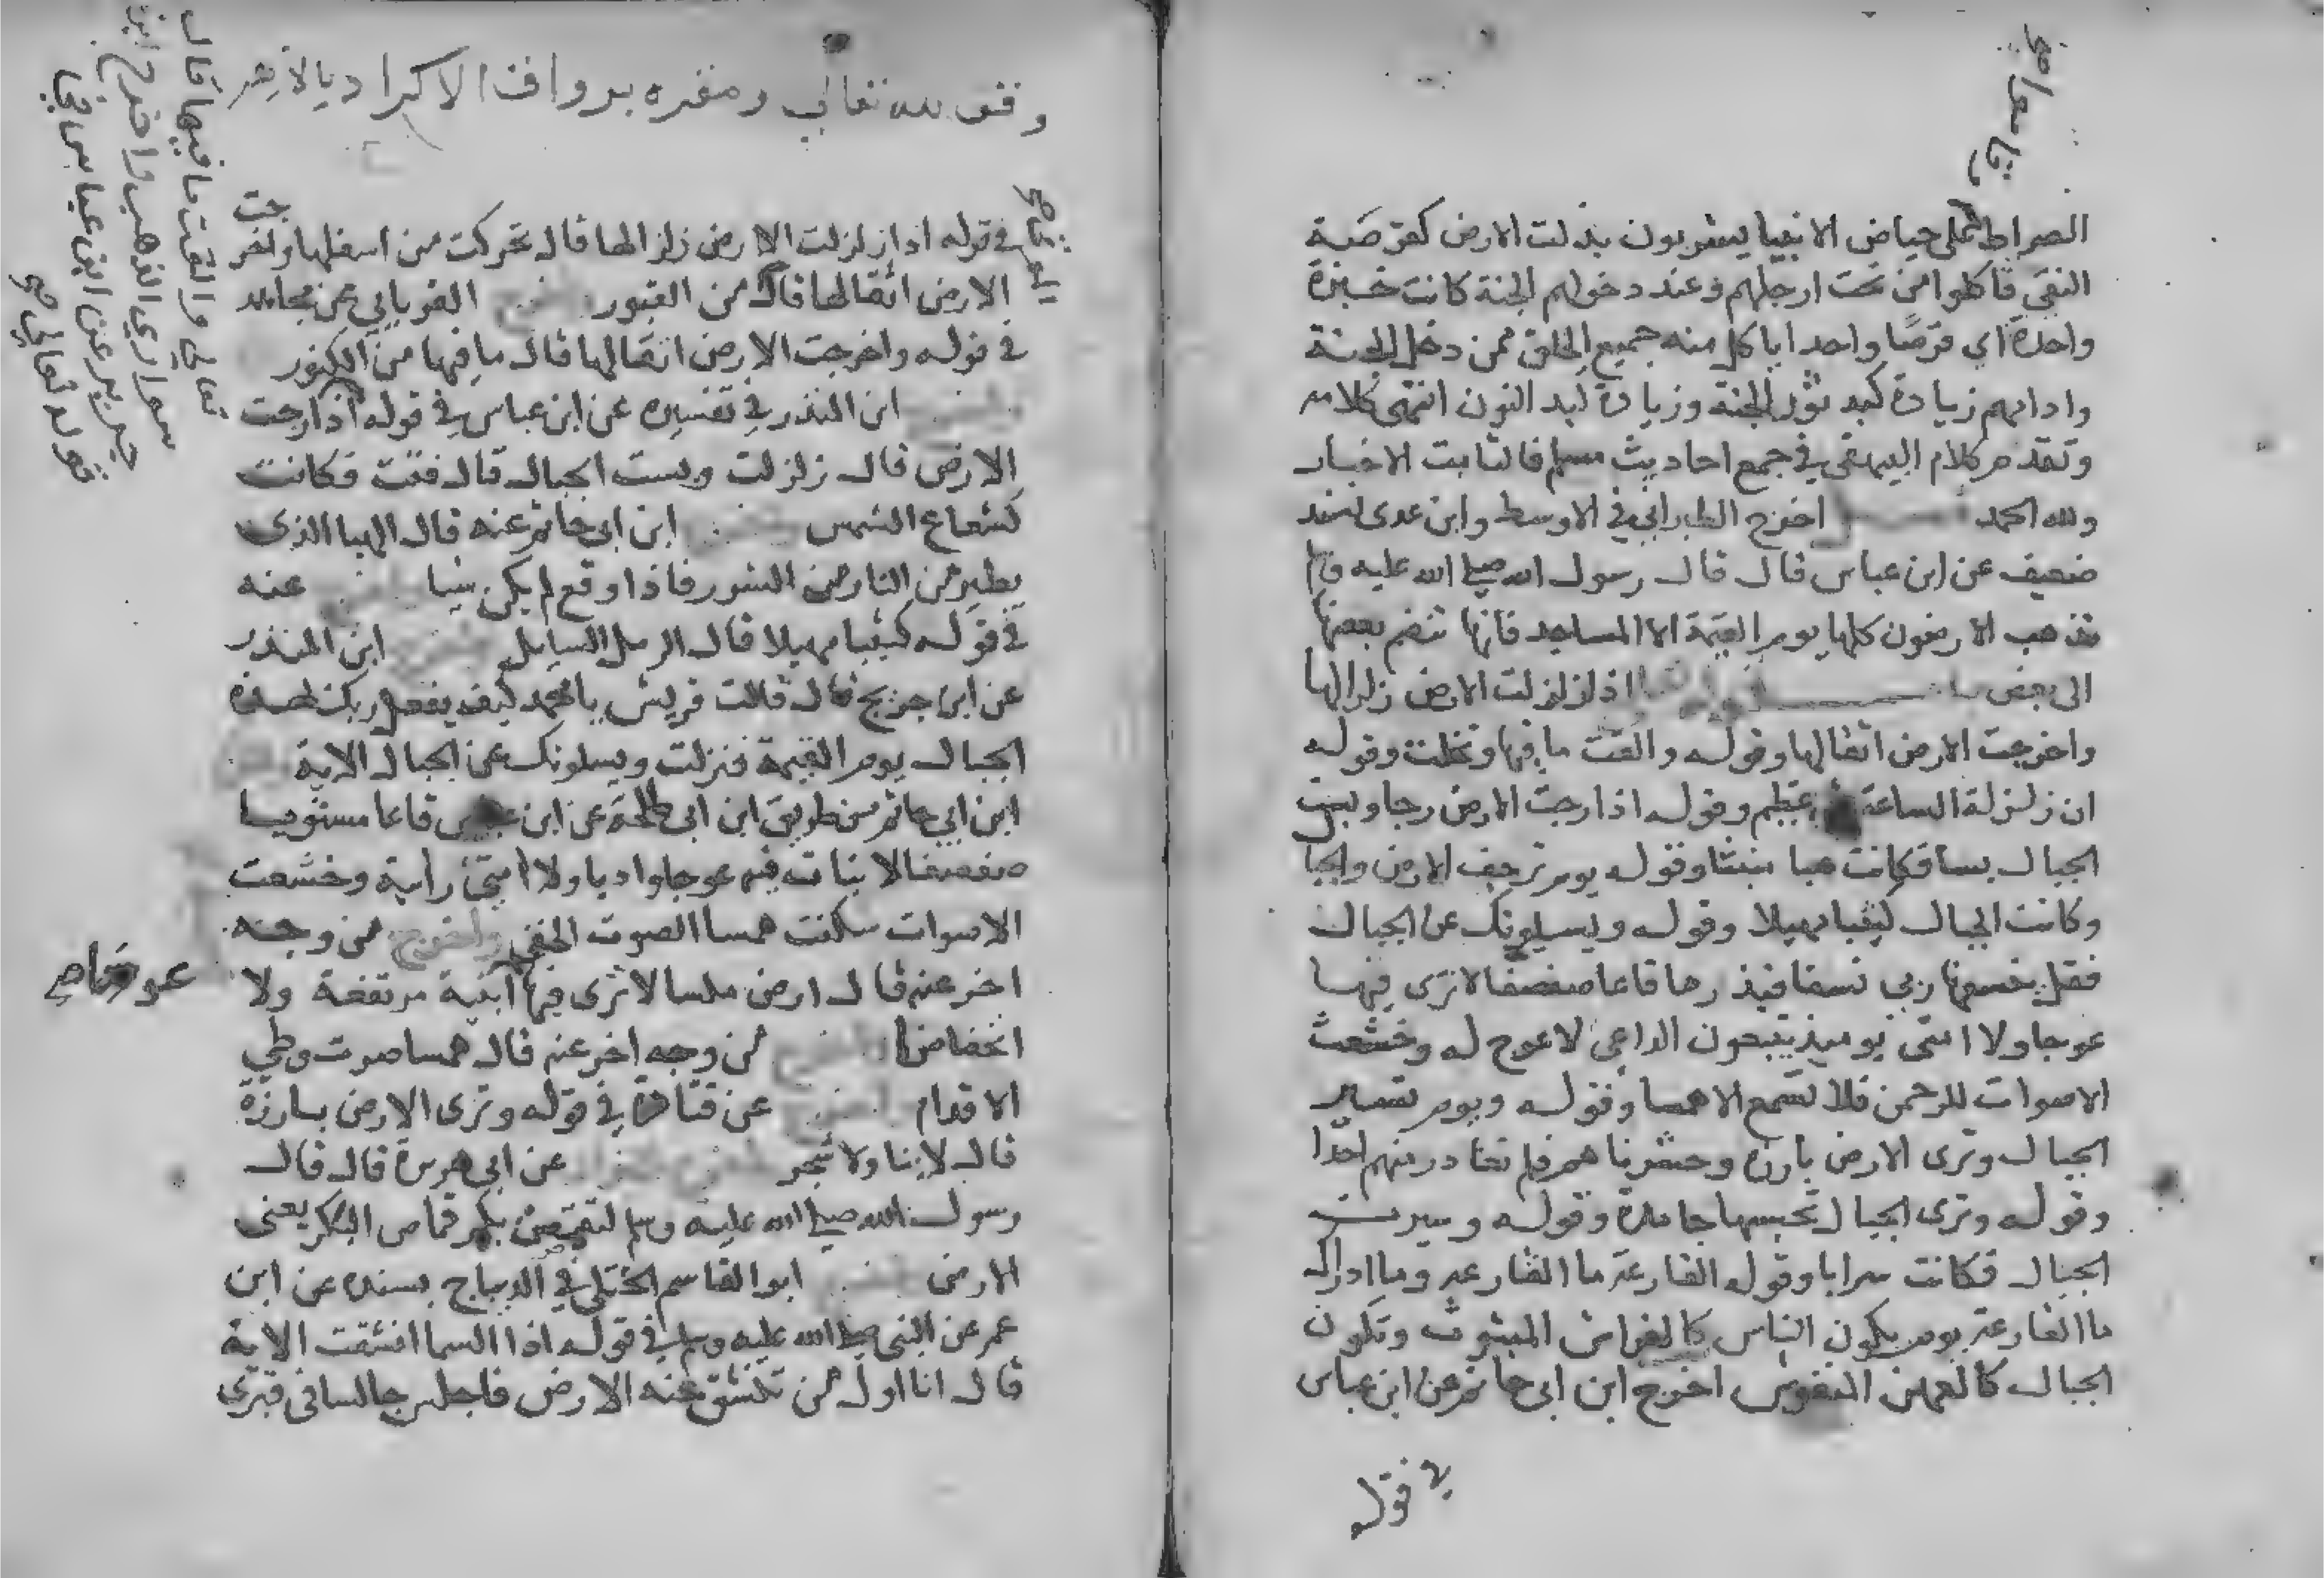 الصراط على حياض الانبيا يشربون بدلت الارض كقرصة
النقي فاكلوا من تحت ارجلهم وعند دخولهم الجنة كانت خبزة
واحدة اي قرصا واحدا ياكل منه جميع الخلق ممن دخل الجنة
وادامهم زيادة كبد ثور الجنة وزيادة كبد النون انتهى كلامه
وتقدم كلام البيهقي في جمع احاديث مسلم فالثابت الاخبار
ولله الحمد اخرج الطبراني في الاوسط وابن عدى بسند
ضعيف عن ابن عباس قال قال رسول الله صلى الله عليه وسلم
تذهب الارضون كلها يوم القيمة الا المساجد فانها تنضم بعضها
الى بعض اذا زلزلت الارض زلزالها
واخرجت الارض اثقالها وقوله والقت ما فيها وتخلت وقوله
ان زلزلة الساعة عظيم وقوله اذا رجت الارض رجا وبست
الجبال بسا فكانت هبا منبثا وقوله يوم ترجف الارض والجبا
وكانت الجبال كثيبا مهيلا وقوله ويسيلونك عن الجبال
فقل ينسفها ربي نسفا فيذرها قاعا صفصفا لا ترى فيها
عوجا ولا امتى يوميذ يتبعون الداعي لا عوج له وخشعت
الاصوات للرحمن فلا تسمع الا همسا وقوله ويوم تسير
الجبال وترى الارض بارزة وحشرناهم فلم نغادر منهم احدا
وقوله وترى الجبال تحسبها جامدة وقوله وسيرت
الجبال فكانت سرابا وقوله القارعة ما القارعة وما ادراك
ما القارعة يوم يكون الناس كالفراش المبثوث وتكون
الجبال كالعهن المنفوش اخرج ابن ابي حاتم عن ابن عباس
في قوله
وقف لله تعالى ومقره برواق الاكراد بالازهر
في قوله اذا زلزلت الارض زلزالها قال تحركت من اسفلها واخرجت
الارض اثقالها قال من القبور الفريابي عن مجاهد
في قوله واخرجت الارض اثقالها قال ما فيها من الكنوز
ابن المنذر في تفسيره عن ابن عباس في قوله اذا رجت
الارض قال زلزلت وبست الجبال قال فتت فكانت
كشعاع الشمس ابن ابي حاتم عنه قال الهبا الذي
يطير من النار من الشرر فاذا وقع لم يكن شيا عنه
في قوله كثيبا مهيلا قال الرمل السايل ابن المنذر
عن ابن جريج قال قالت قريش يا محمد كيف يفعل ربك بهذه
الجبال يوم القيمة فنزلت ويسلونك عن الجبال الاية
ابن ابي حاتم من طريق ابن ابي طلحة عن ابن عباس قاعا مستويا
صفصفا لا نبات فيه عوجا واديا ولا امتى رابية وخشعت
الاصوات سكنت همسا الصوت الخفي واخرج من وجه
اخر عنه قال ارض ملسا لا ترى فيها ابنية مرتفعة ولا
انخفاضا من وجه اخر عنه قال همسا صوت وطي
الاقدام عن قتادة في قوله وترى الارض بارزة
قال لا بنا ولا شجر عن ابي هريرة قال قال
رسول الله صلى الله عليه وسلم لتقمصن بكم قماص البكر يعنى
الارض ابو القاسم الختلي في الديباج بسنده عن ابن
عمر عن النبي صلى الله عليه وسلم في قوله اذا السما انشقت الاية
قال انا اول من تنشق عنه الارض فاجلس جالسا في قبرى
تعالى والقت ما فيها قال
سواري الذهب واخرج ابن
جرير عن ابن عباس في
قوله تعالى